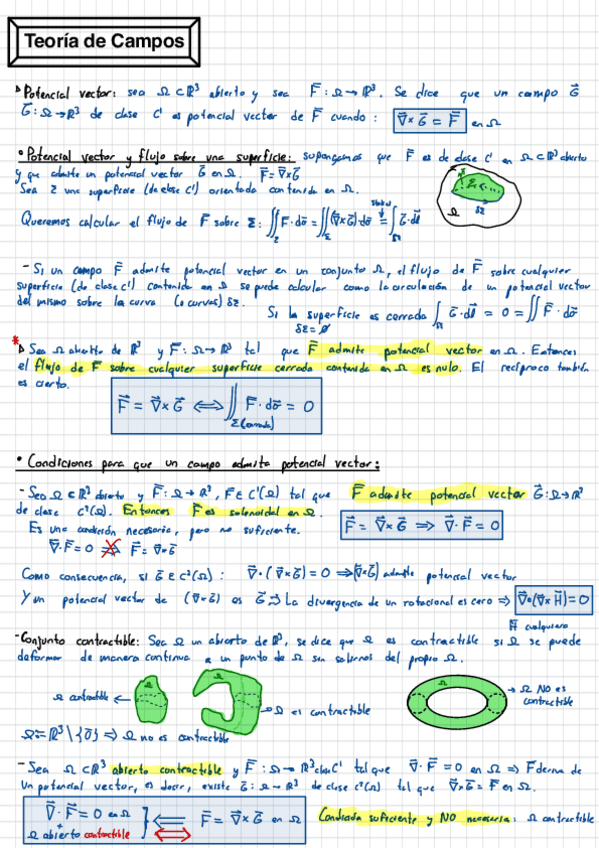 Teoría de Campos
▷ Potencial vector: sea Ω ⊂ ℝ³ abierto y sea F̄ : Ω → ℝ³. Se dice que un campo G⃗
G⃗ : Ω → ℝ³ de clase C¹ es potencial vector de F̄ cuando : ∇⃗×G⃗ = F⃗ en Ω
• Potencial vector y flujo sobre una superficie: supongamos que F̄ es de clase C¹ en Ω ⊂ ℝ³ abierto
y que admite un potencial vector G⃗ en Ω. F̄ = ∇⃗×G⃗
Sea Σ una superficie (de clase C¹) orientada contenida en Ω.
Queremos calcular el flujo de F̄ sobre Σ: ∬_Σ F̄·dσ̄ = ∬_Σ (∇⃗×G⃗)·dσ̄ = ∫ G⃗·dl⃗
Ω Σ δΣ
- Si un campo F̄ admite potencial vector en un conjunto Ω, el flujo de F̄ sobre cualquier
superficie (de clase C¹) contenida en Ω se puede calcular como la circulación de un potencial vector
del mismo sobre la curva (o curvas) δΣ. Si la superficie es cerrada ∫ G⃗·dl⃗ = 0 = ∬ F̄·dσ̄
δΣ = ∅
* ▷ Sea Ω abierto de ℝ³ y F̄ : Ω → ℝ³ tal que F̄ admite potencial vector en Ω. Entonces
el flujo de F̄ sobre cualquier superficie cerrada contenida en Ω es nulo. El recíproco también
es cierto.
F⃗ = ∇⃗×G⃗ ⟺ ∬_Σ(cerrada) F̄·dσ̄ = 0
• Condiciones para que un campo admita potencial vector:
- Sea Ω ⊂ ℝ³ abierto y F̄ : Ω → ℝ³, F̄ ∈ C¹(Ω) tal que F̄ admite potencial vector G⃗ : Ω → ℝ³
de clase C²(Ω). Entonces F̄ es solenoidal en Ω.
Es una condición necesaria, pero no suficiente. F⃗ = ∇⃗×G⃗ ⟹ ∇⃗·F⃗ = 0
∇⃗·F̄ = 0 ⇏ F̄ = ∇⃗×G⃗
Como consecuencia, si G⃗ ∈ C²(Ω) : ∇⃗·(∇⃗×G⃗) = 0 ⟹ (∇⃗×G⃗) admite potencial vector
Y un potencial vector de (∇⃗×G⃗) es G⃗ ⟹ La divergencia de un rotacional es cero ⟹ ∇⃗·(∇⃗×H⃗) = 0
H⃗ cualquiera
- Conjunto contractible: Sea Ω un abierto de ℝ³, se dice que Ω es contractible si Ω se puede
deformar de manera continua a un punto de Ω sin salirnos del propio Ω.
Ω contractible ← Ω Ω → Ω es contractible Ω → Ω NO es
contractible
Ω = ℝ³\{0̄} ⟹ Ω no es contractible
- Sea Ω ⊂ ℝ³ abierto contractible y F̄ : Ω → ℝ³ clase C¹ tal que ∇⃗·F̄ = 0 en Ω ⟹ F̄ deriva de
un potencial vector, es decir, existe G⃗ : Ω → ℝ³ de clase C²(Ω) tal que ∇⃗×G⃗ = F̄ en Ω.
∇⃗·F̄ = 0 en Ω } ⟸ F̄ = ∇⃗×G⃗ en Ω Condición suficiente y NO necesaria: Ω contractible
+ ⟺
Ω abierto contractible